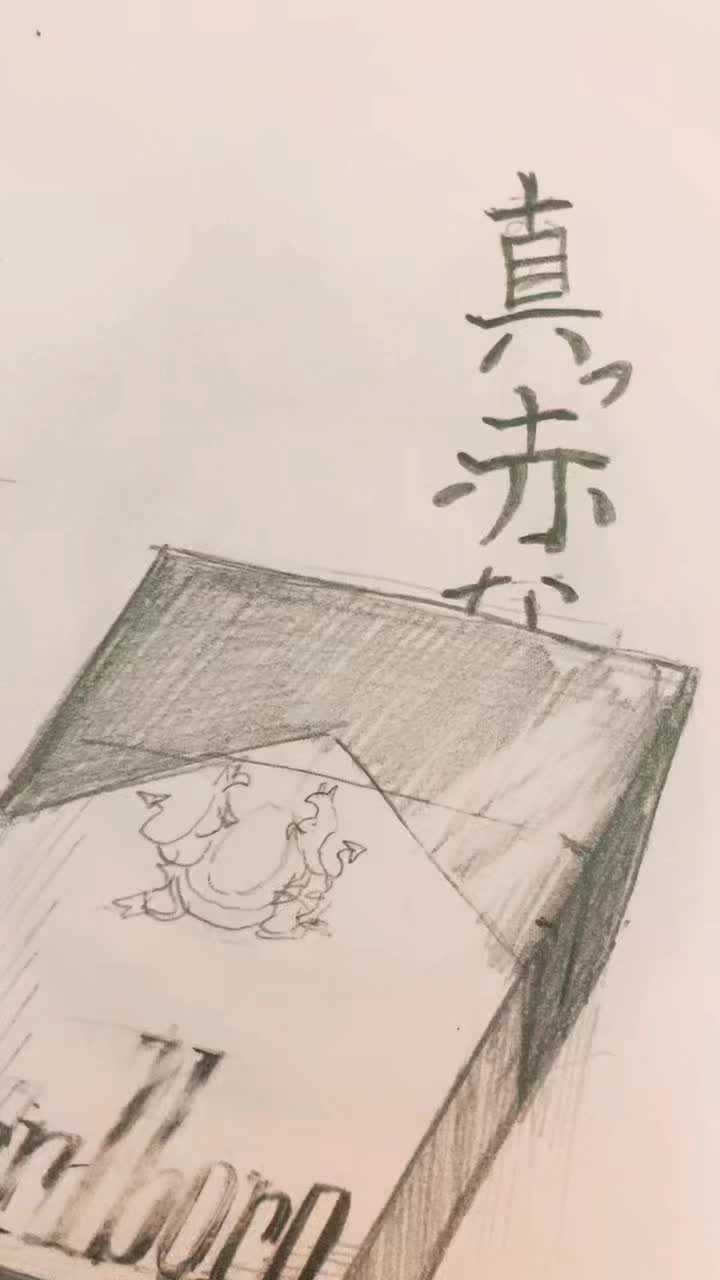 真っ赤な
arlboro